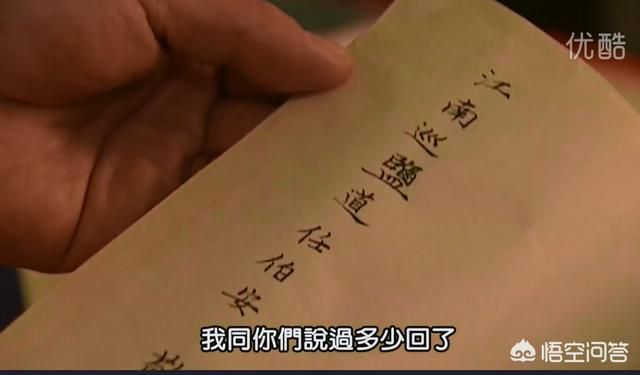 优酷
江南巡鹽道任伯安
我同你們說過多少回了
悟空问答